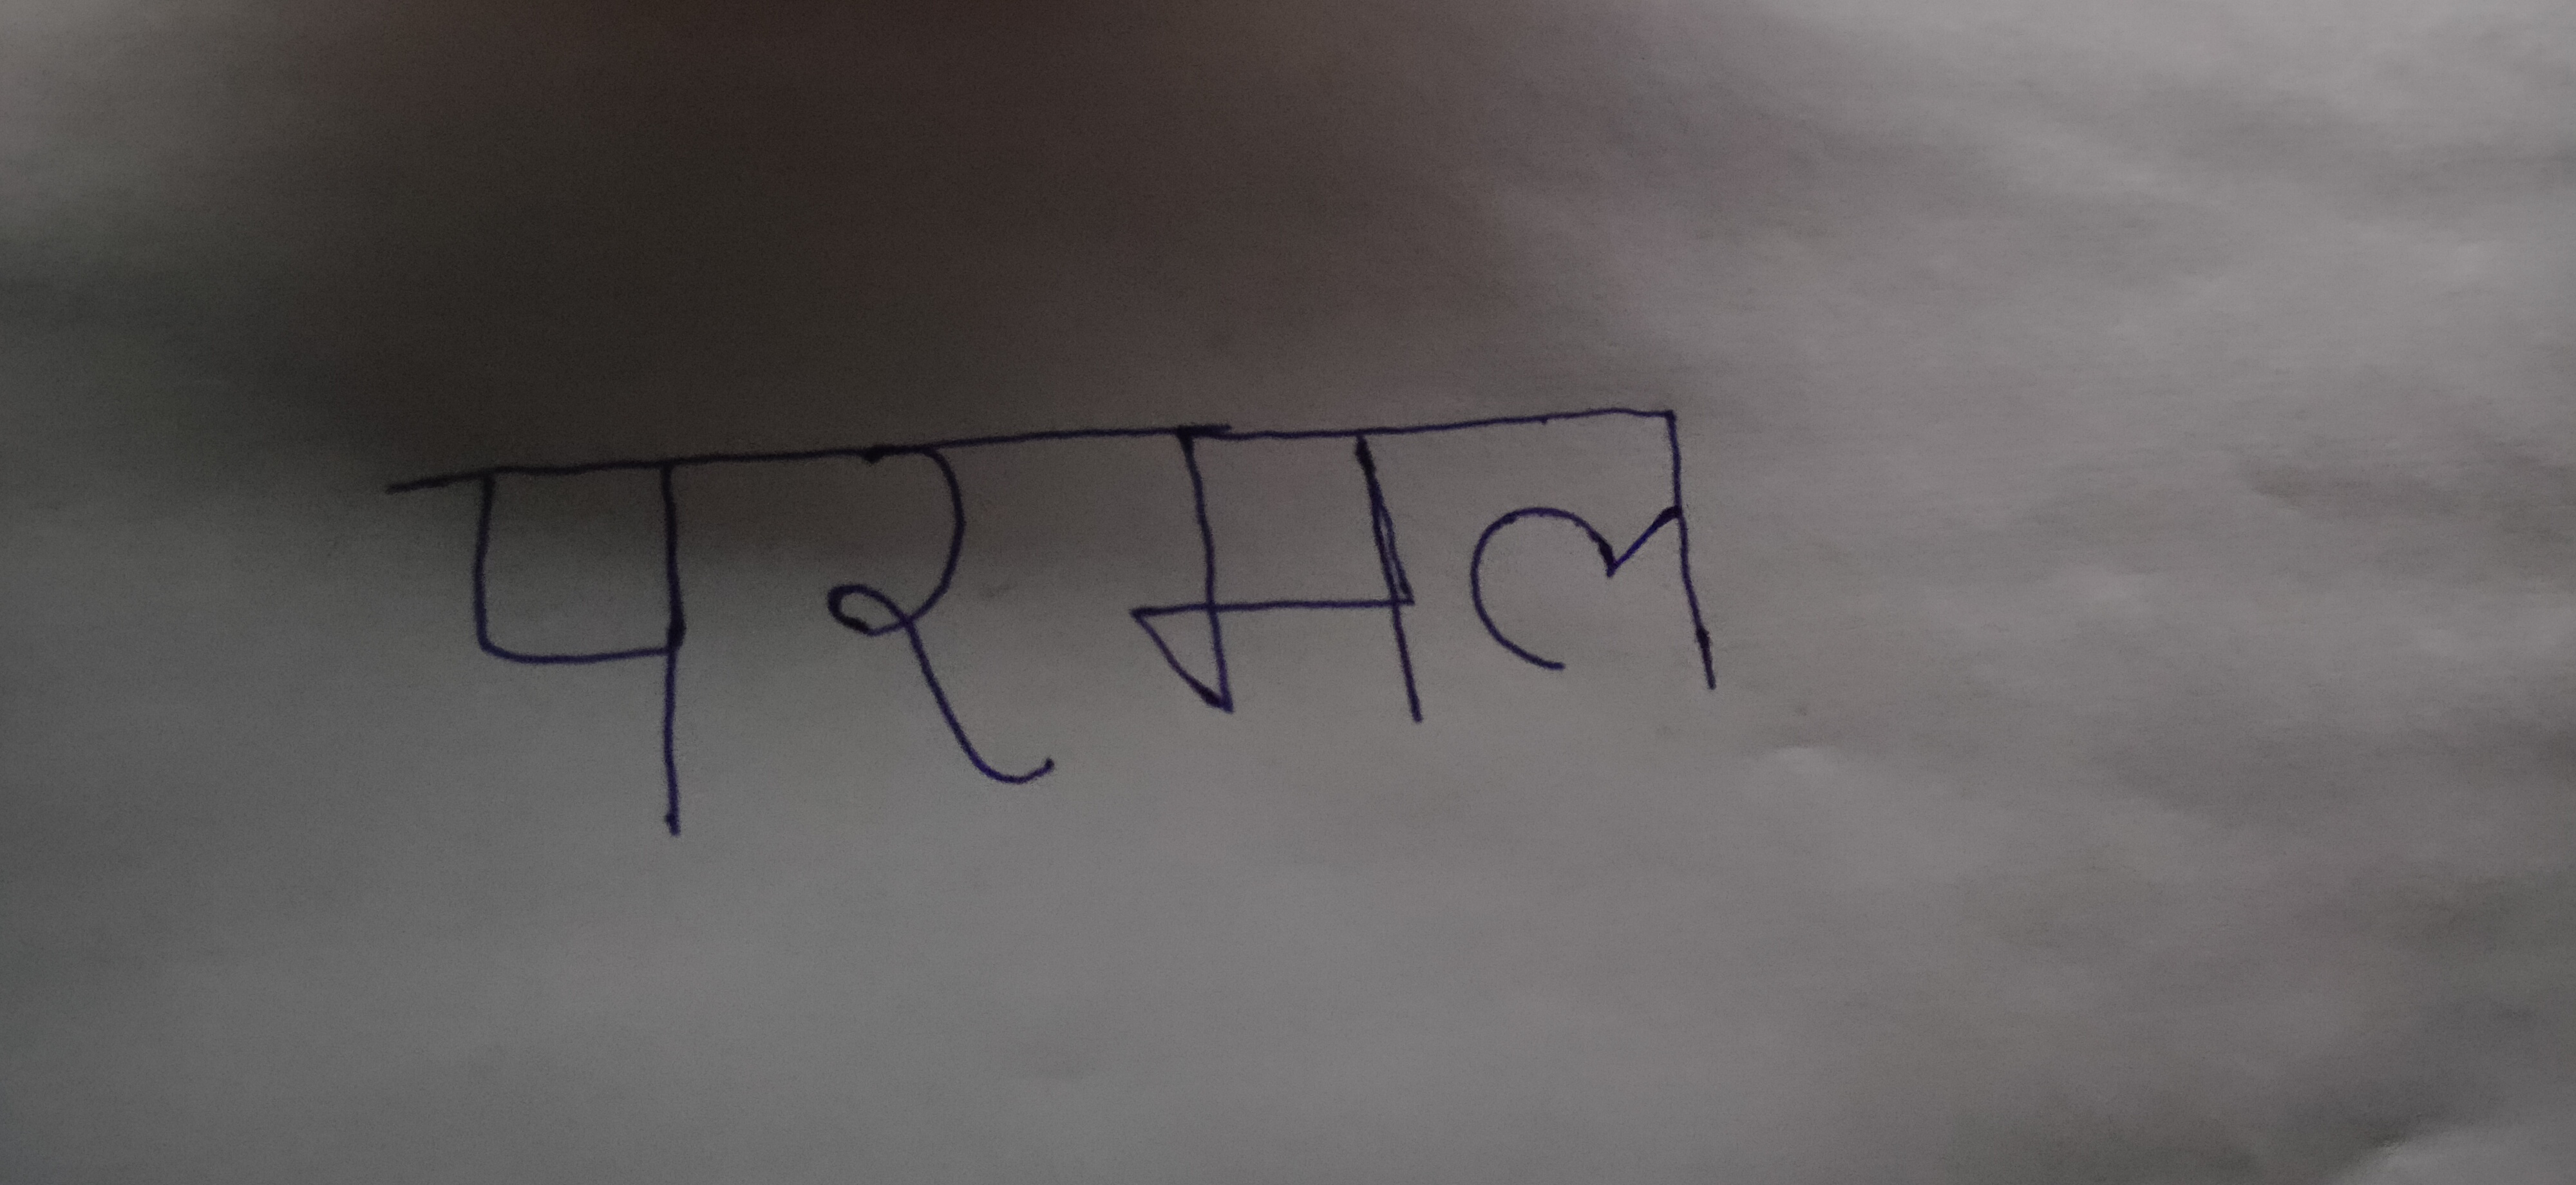 परमल